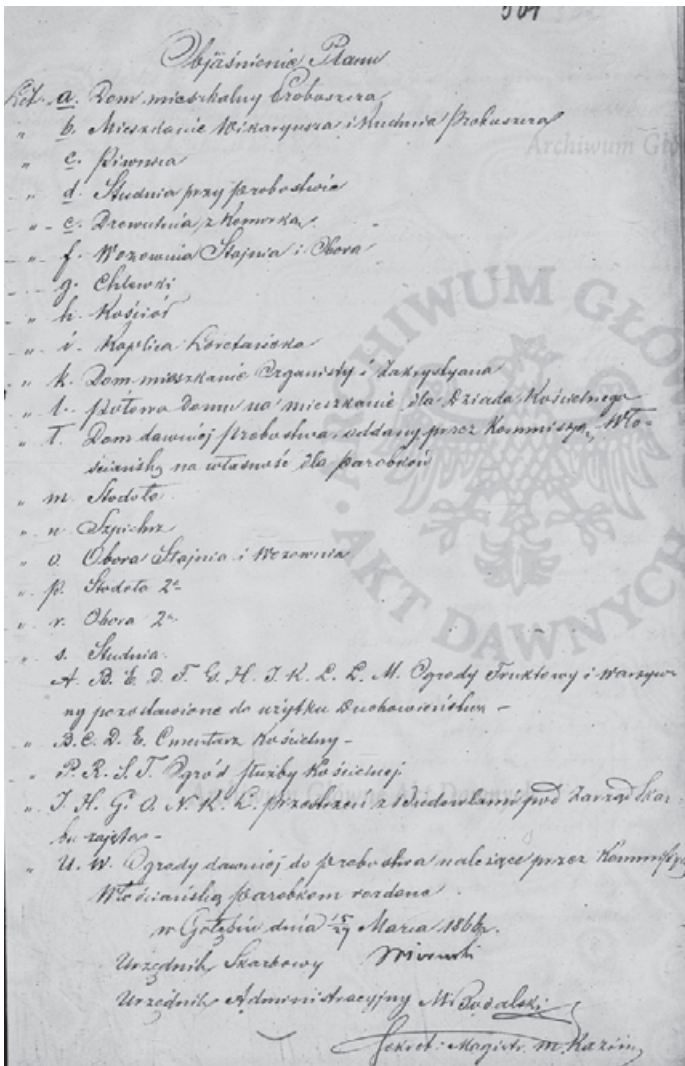 Objaśnienie Planu
Lit. a. Dom mieszkalny Proboszcza
" b. Mieszkanie Wikaryusza i Kuchnia Proboszcza
" c. Piwnica
" d. Studnia przy probostwie
" e. Drewutnia z Komorką
" f. Wozownia Stajnia i Obora
" g. Chlewki
" h. Kościół
" i. Kaplica Loretańska
" k. Dom mieszkanie Organisty i Zakrystyana
" l. Połowa Domu na mieszkanie dla Dziada Kościelnego
" ł. Dom dawniej Probostwa oddany przez Kommissyą Wło-
ściańską na własność dla parobków
" m. Stodoła
" n. Szpichrz
" o. Obora Stajnia i Wozownia
" p. Stodoła 2a
" r. Obora 2a
" s. Studnia
A. B. E. D. F. G. H. I. K. L. Ł. M. Ogrody Fruktowy i Warzyw-
ny pozostawione do użytku Duchowieństwa -
" B. C. D. E. Cmentarz Kościelny -
" P. R. S. T. Ogród służby Kościelnej
" I. H. G. O. N. K. L. przestrzeń z Budowlami pod Zarząd Skar-
bu zajęta -
" U. W. Ogrody dawniej do probostwa należące przez Kommissyą
Włościańską parobkom rozdane.
w Gołębiu dnia 15/27 Marca 1866 r.
Urzędnik Skarbowy
Urzędnik Administracyjny M. Podalski
Sekret: Magistr. M.
ARCHIWUM GŁÓWNE AKT DAWNYCH
Archiwum Główne Akt Dawnych